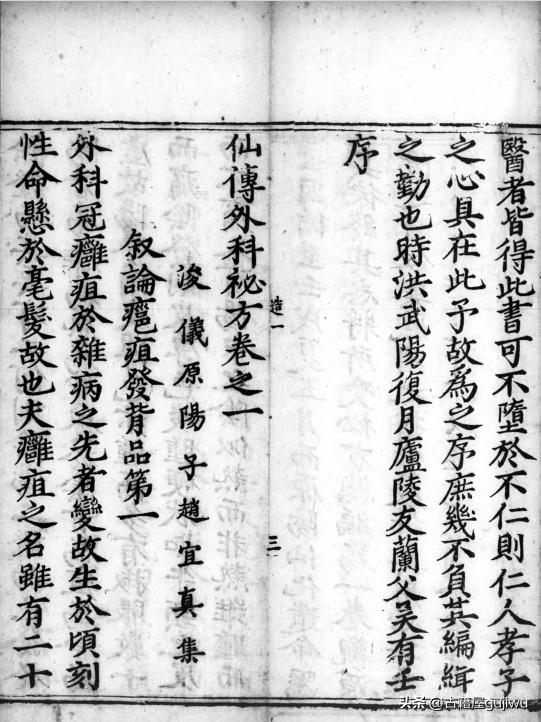 醫者皆得此書可不墮於不仁則仁人孝子
之心具在此予故為之序庶幾不負其編緝
之勤也時洪武陽復月廬陵友蘭父吴有壬
序
造一
三
仙傳外科祕方卷之一
浚儀原陽子趙宜真集
叙論癰疽發背品第一
外科冠癰疽於雜病之先者變故生於頃刻
性命懸於毫髮故也夫癰疽之名雖有二十
头条 @古籍屋gujiwu